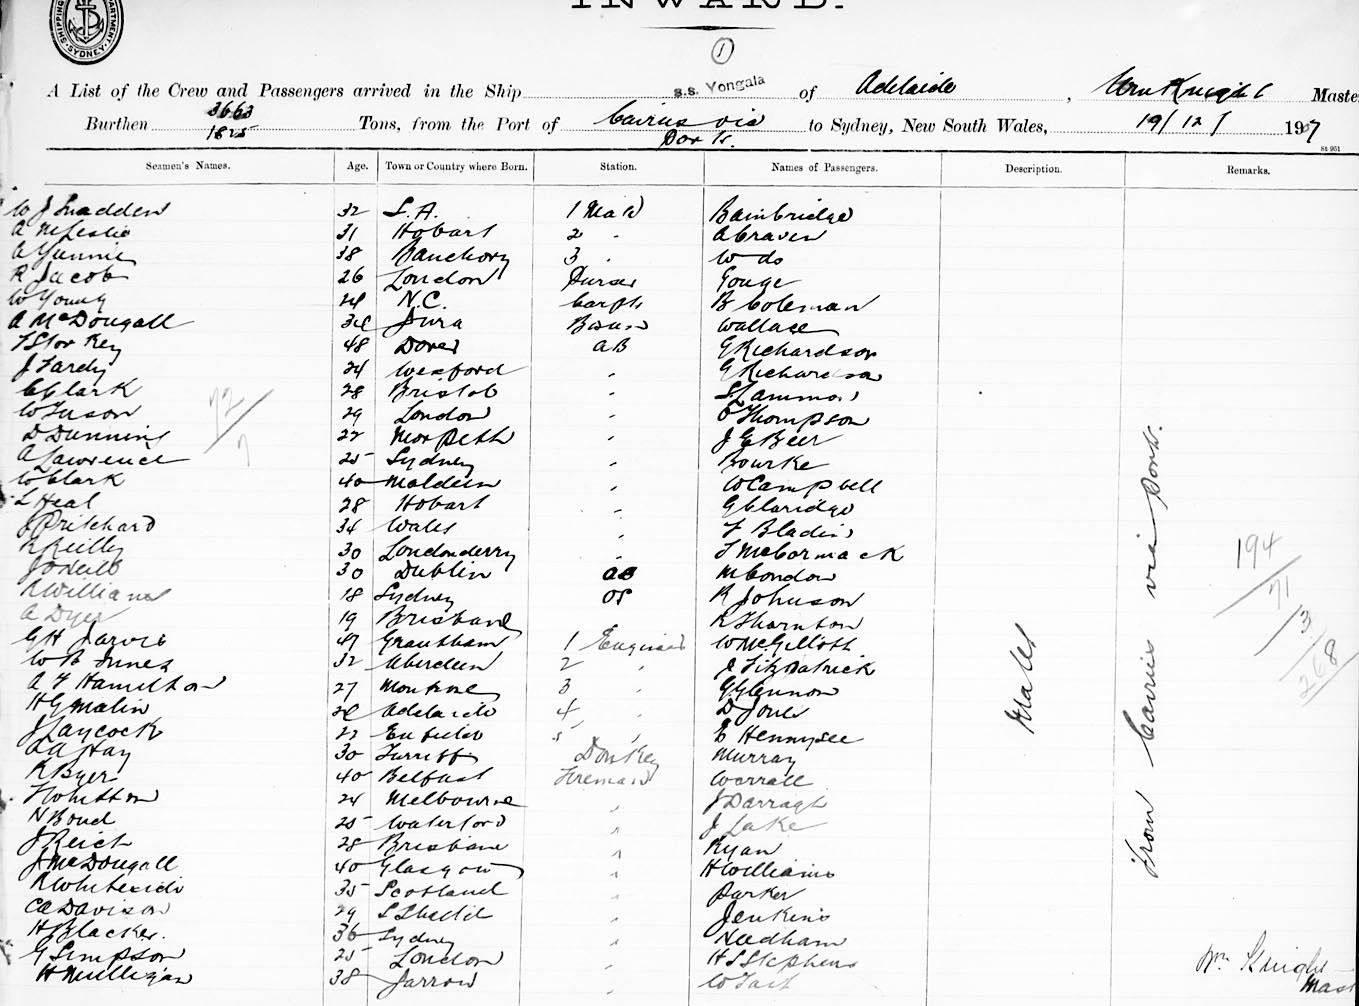 INWARD.
SHIPPING DEPARTMENT SYDNEY
1
A List of the Crew and Passengers arrived in the Ship s.s. Yongala of Adelaide, Wm Knight Maste
Burthen 3663 Tons, from the Port of Cairns via to Sydney, New South Wales, 19/12/ 1907
1825 Ports.
St 951
Seamen's Names. Age. Town or Country where Born. Station. Names of Passengers. Description. Remarks.
W J Snadden 32 S.A. 1 Mate Bainbridge
A McLeslie 31 Hobart 2 " A Craven
38 Banchory 3 " W do
R Jacob 26 London Purser Gouge
W Young 24 N.C. Carptr B Coleman
A McDougall 34 Jura Bosun Wallace
F Storkey 48 Dover AB G Richardson
J Fardy 24 Wexford " G Richardson
C Clark 28 Bristol " S Lammon
W Tuson 29 London " Thompson
D Dunning 22 Morpeth " J G Beer
A Lawrence 25 Sydney " Bourke
W Clark 40 Maldon " W Campbell
L Heal 28 Hobart " G Claridge
J Pritchard 34 Wales " F Bladin
R Reilly 30 Londonderry " T McCormack
J O'Neill 30 Dublin AB M Condon
R Williams 18 Sydney OS R Johnson
A Dyer 19 Brisbane R Thornton
G H Jarvis 47 Grantham 1 Engineer W McGilloth
W B Innes 32 Aberdeen 2 " J Fitzpatrick
A F Hamilton 27 Montrose 3 " G Glennon
H G Matin Adelaide 4 " D Jones
J Laycock 22 Enfield 5 " E Hennysee
A A Hay 30 Turriff Donkey Murray
R Byers 40 Belfast Fireman Worrall
F Whitton 24 Melbourne " J Darragh
N Bond 25 Waterford " J Lake
J Reich 28 Brisbane " Ryan
J McDougall 40 Glasgow " H Williams
R Whiteside 35 Scotland " Parker
C A Davison 29 S Shields " Jenkins
H J Blacker. 36 Sydney " Needham
G Simpson 25 London " H S Stephens
H Mulligan 38 Jarrow " W Tait
72/7
Males
From Cairns via Ports.
194
71
3
268
Wm Knight
Mast